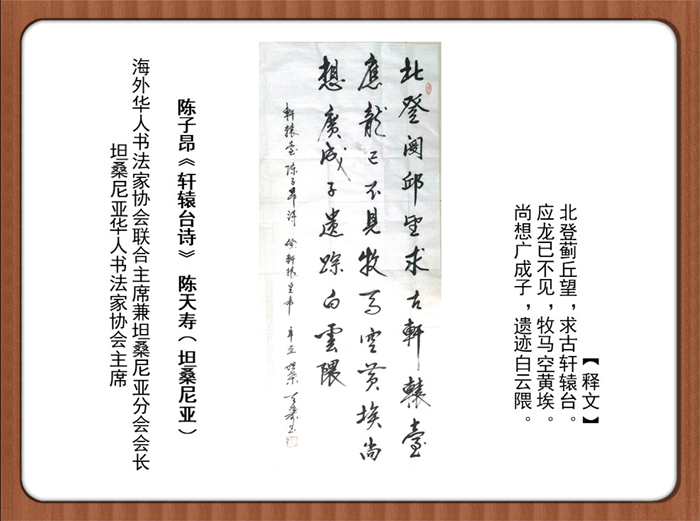 【释文】
北登蓟丘望，求古轩辕台。
应龙已不见，牧马空黄埃。
尚想广成子，遗迹白云隈。
北登邱望求古軒轅臺
應龍已不見牧馬空黄埃尚
想廣成子遺踪白雲隈
軒轅臺 陳子昂詩 辛丑
陈子昂《轩辕台诗》 陈天寿（坦桑尼亚）
海外华人书法家协会联合主席兼坦桑尼亚分会会长
坦桑尼亚华人书法家协会主席